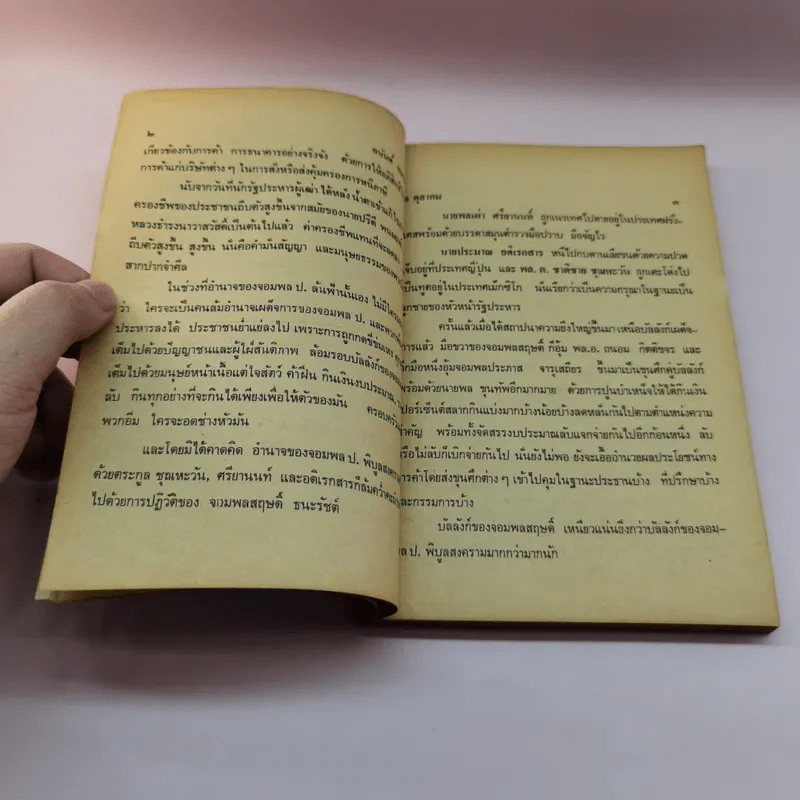 ๒
เกี่ยวข้องกับการค้า การธนาคารอย่างจริงจัง ด้วยการให้
การค้าแก่บริษัทต่าง ๆ ในการสั่งหรือส่งคุ้มครองการหนีภาษี
นับจากวันที่นักรัฐประหารผู้เฒ่า ได้หลั่งน้ำตาเข้า
ครองชีพของประชาชนถีบตัวสูงขึ้นจากสมัยของนายปรีดี พนมยงค์
หลวงธำรงนาวาสวัสดิ์เป็นต้นไปแล้ว ค่าครองชีพแทนที่จะลดลง
ถีบตัวสูงขึ้น สูงขึ้น นั่นคือคำมั่นสัญญา และมนุษยธรรมของ
สากปากจำศีล
ในช่วงที่อำนาจของจอมพล ป. ล้นฟ้านั้นเอง ไม่มีใคร
ว่า ใครจะเป็นคนล้มอำนาจเผด็จการของจอมพล ป. และพวก
ประหารลงได้ ประชาชนย่ำแย่ลงไป เพราะการถูกกดขี่ข่มเหง
เต็มไปด้วยปัญญาชนและผู้ใฝ่สันติภาพ ล้อมรอบบัลลังก์ของ
เต็มไปด้วยมนุษย์หน้าเนื้อแต่ใจสัตว์ ค้าฝิ่น กินเงินงบประมาณ
ลับ กินทุกอย่างที่จะกินได้เพียงเพื่อให้ตัวของมัน ครอบครัว
พวกอิ่ม ใครจะอดช่างหัวมัน
และโดยมิได้คาดคิด อำนาจของจอมพล ป. พิบูลสงคราม
ด้วยตระกูล ชุณหะวัน, ศรียานนท์ และอดิเรกสารก็ล้มคว่ำ
ไปด้วยการปฏิวัติของ จอมพลสฤษดิ์ ธนะรัชต์
ตุลาคม
๓
นายพลเผ่า ศรียานนท์ ถูกเนรเทศไปตายอยู่ในประเทศฝรั่ง-
เศสพร้อมด้วยบรรดาสมุนตำรวจมือปราบ มือขัญไร
นายประมาณ อดิเรกสาร หนีไปกบดานเลียขนด้วยความปวด
เจ็บอยู่ที่ประเทศญี่ปุ่น และ พล.ต. ชาติชาย ชุณหะวัน ถูกเตะโด่งไป
เป็นทูตอยู่ในประเทศเม็กซิโก นั่นเรียกว่าเป็นความกรุณาในฐานะเป็น
ลูกชายของหัวหน้ารัฐประหาร
ครั้นแล้วเมื่อได้สถาปนาความยิ่งใหญ่ขึ้นมา เหนือบัลลังก์เผด็จ-
การแล้ว มือขวาของจอมพลสฤษดิ์ ก็อุ้ม พล.อ. ถนอม กิตติขจร และ
อีกมือหนึ่งอุ้มจอมพลประภาส จารุเสถียร ขึ้นมาเป็นขุนศึกคู่บัลลังก์
พร้อมด้วยนายพล ขุนทัพอีกมากมาย ด้วยการปูนบำเหน็จให้ได้กินเงิน
เปอร์เซ็นต์สลากกินแบ่งมากบ้างน้อยบ้างลดหลั่นกันไปตามตำแหน่งความ
สำคัญ พร้อมทั้งจัดสรรงบประมาณลับแจกจ่ายกันไปอีกก้อนหนึ่ง ลับ
หรือไม่ลับก็เบิกจ่ายกันไป นั่นยังไม่พอ ยังจะเอื้ออำนวยผลประโยชน์ทาง
การค้าโดยส่งขุนศึกต่าง ๆ เข้าไปคุมในฐานะประธานบ้าง ที่ปรึกษาบ้าง
และกรรมการบ้าง
บัลลังก์ของจอมพลสฤษดิ์ เหนียวแน่นยิ่งกว่าบัลลังก์ของจอม-
พล ป. พิบูลสงครามมากกว่ามากนัก